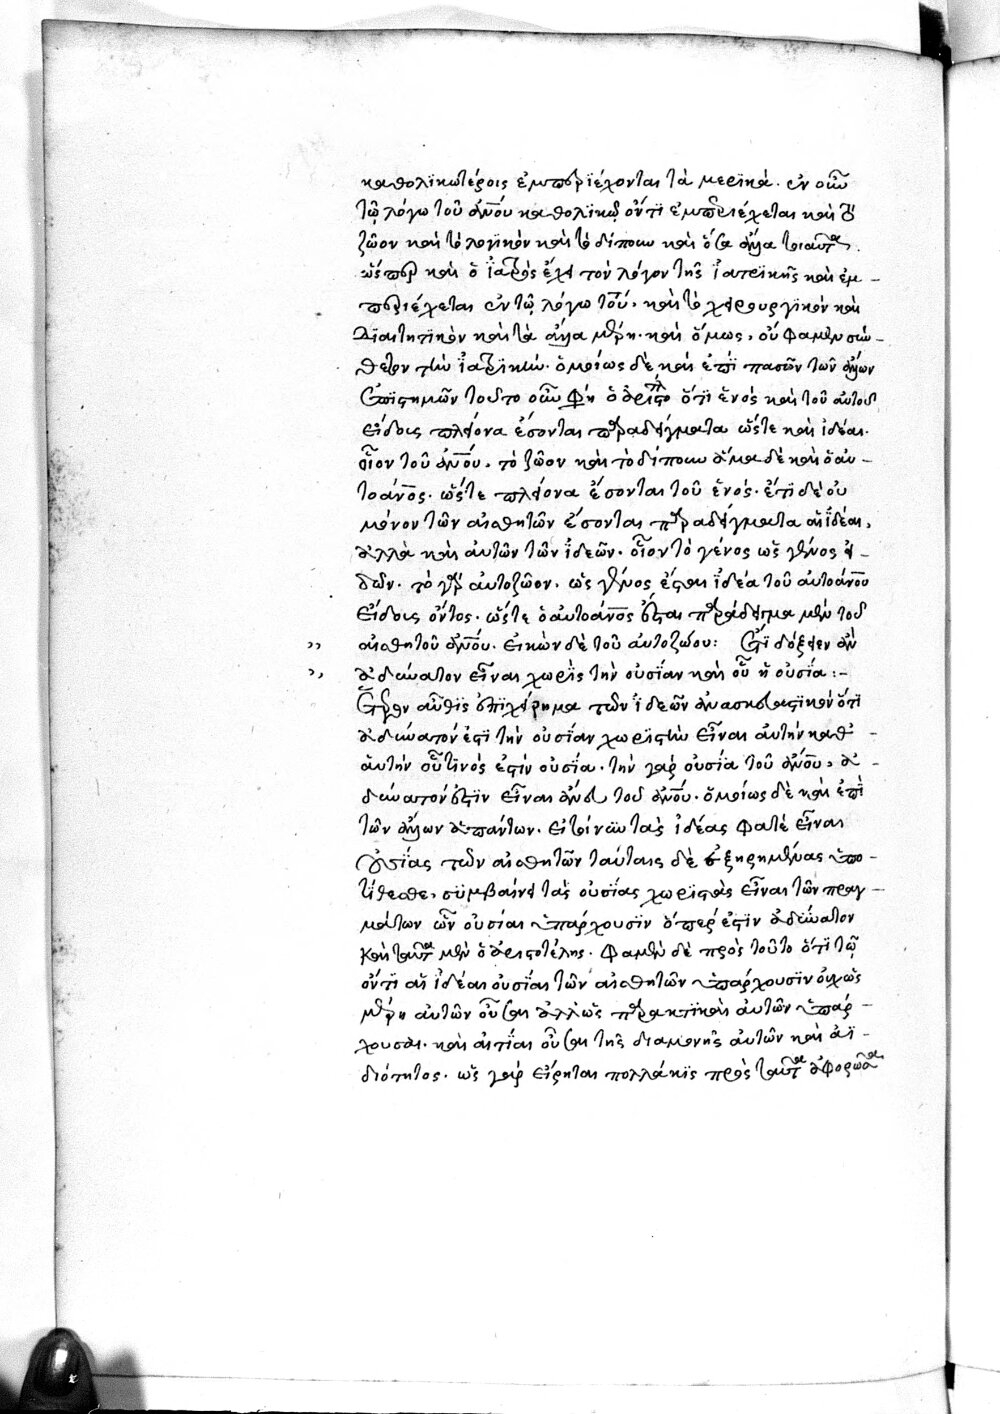 καθολικωτέροις ἐμπεριέχονται τὰ μερικά. ἐν οὖν
τῷ λόγω τοῦ ἀνου καθολικῷ ὄντι ἐμπεριέχεται καὶ τὸ
ζῶον καὶ τὸ λογικὸν καὶ τὸ δίπουν καὶ ὅσα ἄλλα τοιαῦτα.
ὥσπερ καὶ ὁ ἰατρὸς ἔχει τὸν λόγον τῆς ἰατρικῆς καὶ ἐμ-
περιέχεται ἐν τῷ λόγω τού, καὶ τὸ χειρουργικὸν καὶ
διαιτητικὸν καὶ τὰ ἄλλα μέρη. καὶ ὅμως, οὐ φαμὲν σύν-
θετον τὴν ἰατρικήν. ὁμοίως δὲ καὶ ἐπὶ πασῶν τῶν ἄλλων
ἐπιστημῶν τοῦτο οὖν φη ὁ ἀριστο ὅτι ἑνὸς καὶ τοῦ αὐτοῦ
εἴδους πλείονα ἔσονται παραδείγματα ὥστε καὶ ἰδέαι.
οἷον τοῦ ἀνου. τὸ ζῶον καὶ τὸ δίπουν ἅμα δὲ καὶ ὁ αυ-
τοάνος. ὥστε πλείονα ἔσονται τοῦ ἑνός. ἔτι δὲ οὐ
μόνον τῶν αἰσθητῶν ἔσονται παραδείγματα αἱ ἰδέαι,
ἀλλὰ καὶ αὐτῶν τῶν ἰδεῶν. οἷον τὸ γένος ὡς γένος εἰ-
δῶν. τὸ γὰρ αὐτοζῶον. ὡς γένος ἔσται ἰδέα τοῦ αὐτοάνου
εἴδους ὄντος. ὥστε ὁ αὐτοάνος ἔσται παράδειγμα μὲν τοῦ
αἰσθητοῦ ἀνου. εἰκὼν δὲ τοῦ αὐτοζώου: Ἔτι δόξειεν ἂν
ἀδύνατον εἶναι χωρὶς τὴν οὐσίαν καὶ οὗ ἡ οὐσία:-
Ἕτερον αὖθις ἐπιχείρημα τῶν ἰδεῶν ἀνασκευαστικὸν ὅτι
ἀδύνατόν ἐστι τὴν οὐσίαν χωριστὴν εἶναι αὐτὴν καθ' -
αὑτὴν οὗτινός ἐστὶν οὐσία. τὴν γὰρ οὐσία τοῦ ἀνου, ἀ-
δύνατόν ἐστιν εἶναι ἄνευ τοῦ ἀνου. ὁμοίως δὲ καὶ ἐπὶ
τῶν ἄλλων ἁπάντων. εἰ τοίνυν τὰς ἰδέας φατὲ εἶναι
οὐσίας τῶν αἰσθητῶν ταύτας δὲ ἐξηρημένας ὑπο-
τίθεσθε, συμβαίνει τὰς οὐσίας χωριστὰς εἶναι τῶν πραγ-
μάτων ὧν οὐσίαι ὑπάρχουσιν ὅπερ ἐστὶν ἀδύνατον
καὶ ταῦτα μὲν ὁ ἀριστοτέλης. φαμὲν δὲ πρὸς τοῦτο ὅτι τῷ
ὄντι αἱ ἰδέαι οὐσίαι τῶν αἰσθητῶν ὑπάρχουσιν οὐχ ὡς
μέρη αὐτῶν οὖσαι ἀλλ' ὡς παρακτικαὶ αὐτῶν ὑπάρ-
χουσαι. καὶ αἰτίαι οὖσαι τῆς διαμονῆς αὐτῶν καὶ ἀϊ-
διότητος. ὡς γὰρ εἴρηται πολλάκις πρὸς ταῦτα ἀφορῶσα